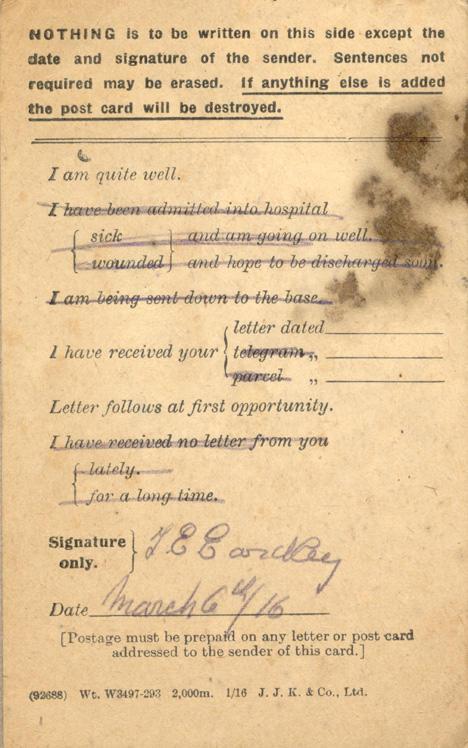 NOTHING is to be written on this side except the
date and signature of the sender. Sentences not
required may be erased. If anything else is added
the post card will be destroyed.
I am quite well.
I have been admitted into hospital
sick and am going on well.
wounded and hope to be discharged soon.
I am being sent down to the base.
letter dated
I have received your telegram „
parcel „
Letter follows at first opportunity.
I have received no letter from you
lately.
for a long time.
Signature only. } T. E. Eardley
Date March 6th/16
[Postage must be prepaid on any letter or post card
addressed to the sender of this card.]
(92688) Wt. W3497-293 2,000m. 1/16 J. J. K. & Co., Ltd.